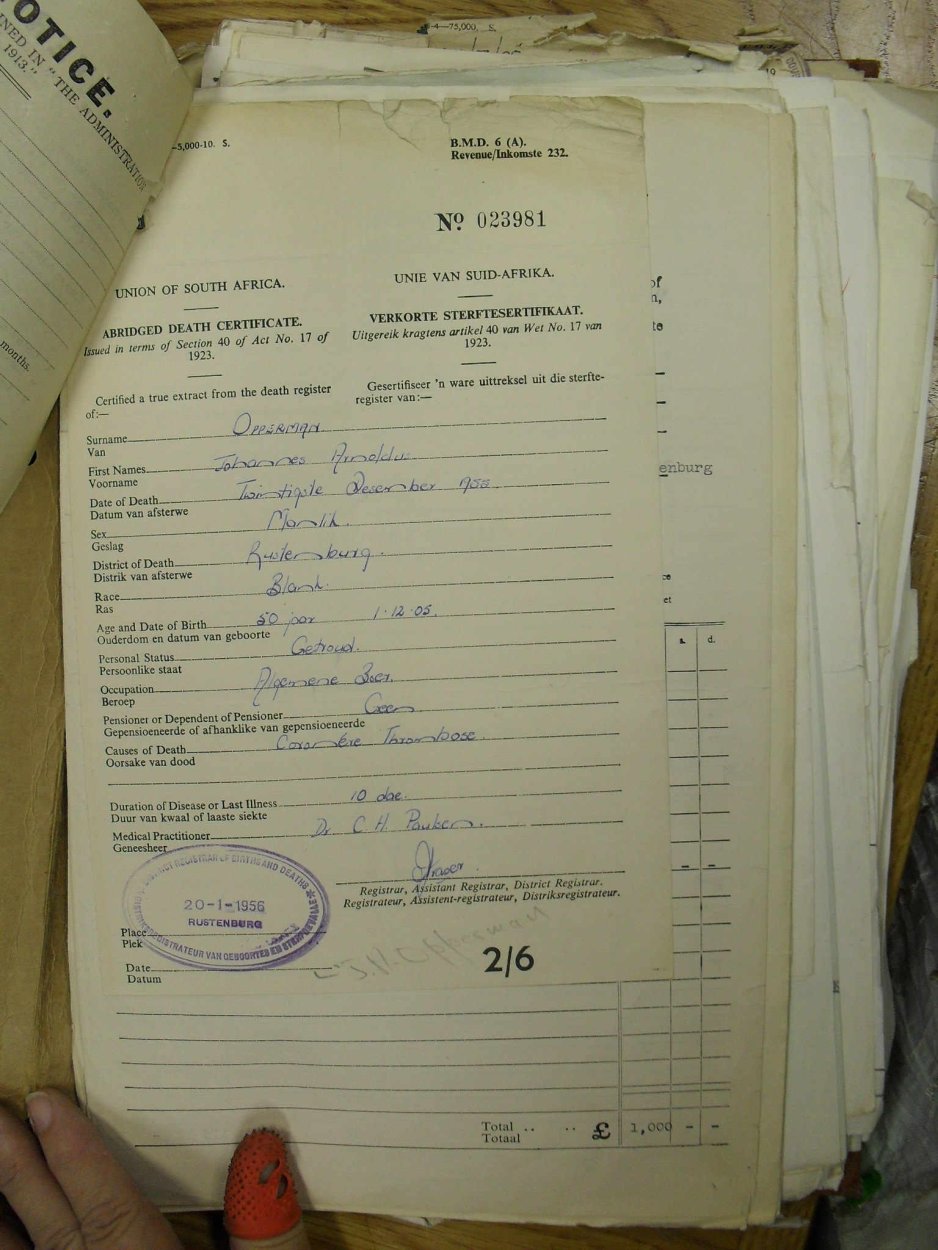 OTICE.
NED IN "THE ADMINISTRATION
1913."
months.
-4-75,000, S.
19
-5,000-10. S.
B.M.D. 6 (A).
Revenue/Inkomste 232.
No 023981
UNION OF SOUTH AFRICA.
UNIE VAN SUID-AFRIKA.
ABRIDGED DEATH CERTIFICATE.
VERKORTE STERFTESERTIFIKAAT.
Issued in terms of Section 40 of Act No. 17 of
1923.
Uitgereik kragtens artikel 40 van Wet No. 17 van
1923.
Certified a true extract from the death register
of:—
Gesertifiseer 'n ware uittreksel uit die sterfte-
register van:—
Surname Opperman
Van
First Names Johannes Arnoldus
Voorname
Date of Death Twintigste Desember 1955.
Datum van afsterwe
Sex Manlik.
Geslag
District of Death Rustenburg.
Distrik van afsterwe
Race Blank.
Ras
Age and Date of Birth 50 jaar 1.12.05.
Ouderdom en datum van geboorte
Personal Status Getroud.
Persoonlike staat
Occupation Algemene Boer.
Beroep
Pensioner or Dependent of Pensioner Geen
Gepensioeneerde of afhanklike van gepensioeneerde
Causes of Death Coronêre Thrombose.
Oorsake van dood
Duration of Disease or Last Illness 10 dae.
Duur van kwaal of laaste siekte
Medical Practitioner Dr. C. H.
Geneesheer
Registrar, Assistant Registrar, District Registrar.
Registrateur, Assistent-registrateur, Distriksregistrateur.
DISTRICT REGISTRAR OF BIRTHS AND DEATHS
20-1-1956
RUSTENBURG
DISTRIKSREGISTRATEUR VAN GEBOORTES EN STERFGEVALLE
Place
Plek
Date
Datum
Opperman
2/6
of
n,
te
enburg
et
s. d.
- -
Total .. .. £ 1,000 - -
Totaal